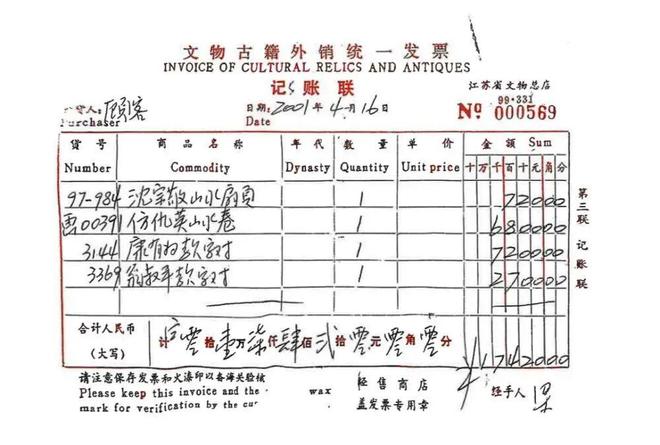 文物古籍外销统一发票
INVOICE OF CULTURAL RELICS AND ANTIQUES
记 账 联
江苏省文物总店
99·331
货人: 顾客 日期: 2001 年 4 月 16 日 Nº 000569
Purchaser Date
货号 商品名称 年代 数量 单价 金额 Sum
Number Commodity Dynasty Quantity Unit price 十万千百十元角分
97-984 沈宗敬山水扇页 1 72000
00391 仿仇英山水卷 1 680000
3144 康有为款字对 1 720000
3369 翁叔平款字对 1 270000
合计人民币
(大写) 计 零 拾 壹 万 柒 仟 肆 佰 弍 拾 零 元 零 角 零 分 ¥1742000
第三联 记账联
请注意保存发票和火漆印以备海关验核
Please keep this invoice and the wax
mark for verification by the
经售商店
盖发票专用章
经手人 梁